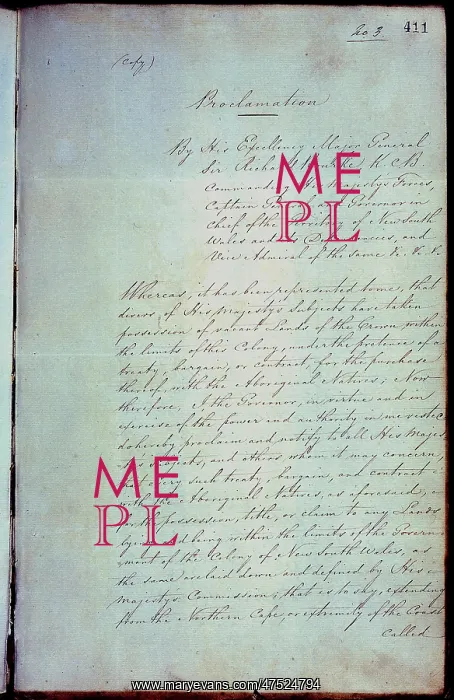 No 3. 411
(Copy)
Proclamation
By His Excellency Major General
Sir Richard Bourke K.C.B.
Commanding His Majesty's Forces,
Captain General and Governor in
Chief of the Territory of New South
Wales and its Dependencies, and
Vice Admiral of the same &c. &c. &c.
Whereas, it has been represented to me, that
divers of His Majesty's Subjects have taken
possession of vacant Lands of the Crown, within
the limits of this Colony, under the pretence of a
treaty, bargain, or contract, for the purchase
thereof, with the Aboriginal Natives; Now
therefore, I, the Governor, in virtue and in
exercise of the power and authority in me vested
do hereby proclaim and notify to all His Majes
ty's Subjects, and others whom it may concern,
that every such treaty, bargain, and contract
with the Aboriginal Natives, as aforesaid,
for the possession, title, or claim to any Lands
lying and being within the limits of the Govern
ment of the Colony of New South Wales, as
the same are laid down and defined by His
Majesty's Commission; that is to say, extending
from the Northern Cape, or extremity of the Coast
called
ME
PL
ME
PL
www.maryevans.com/47524794